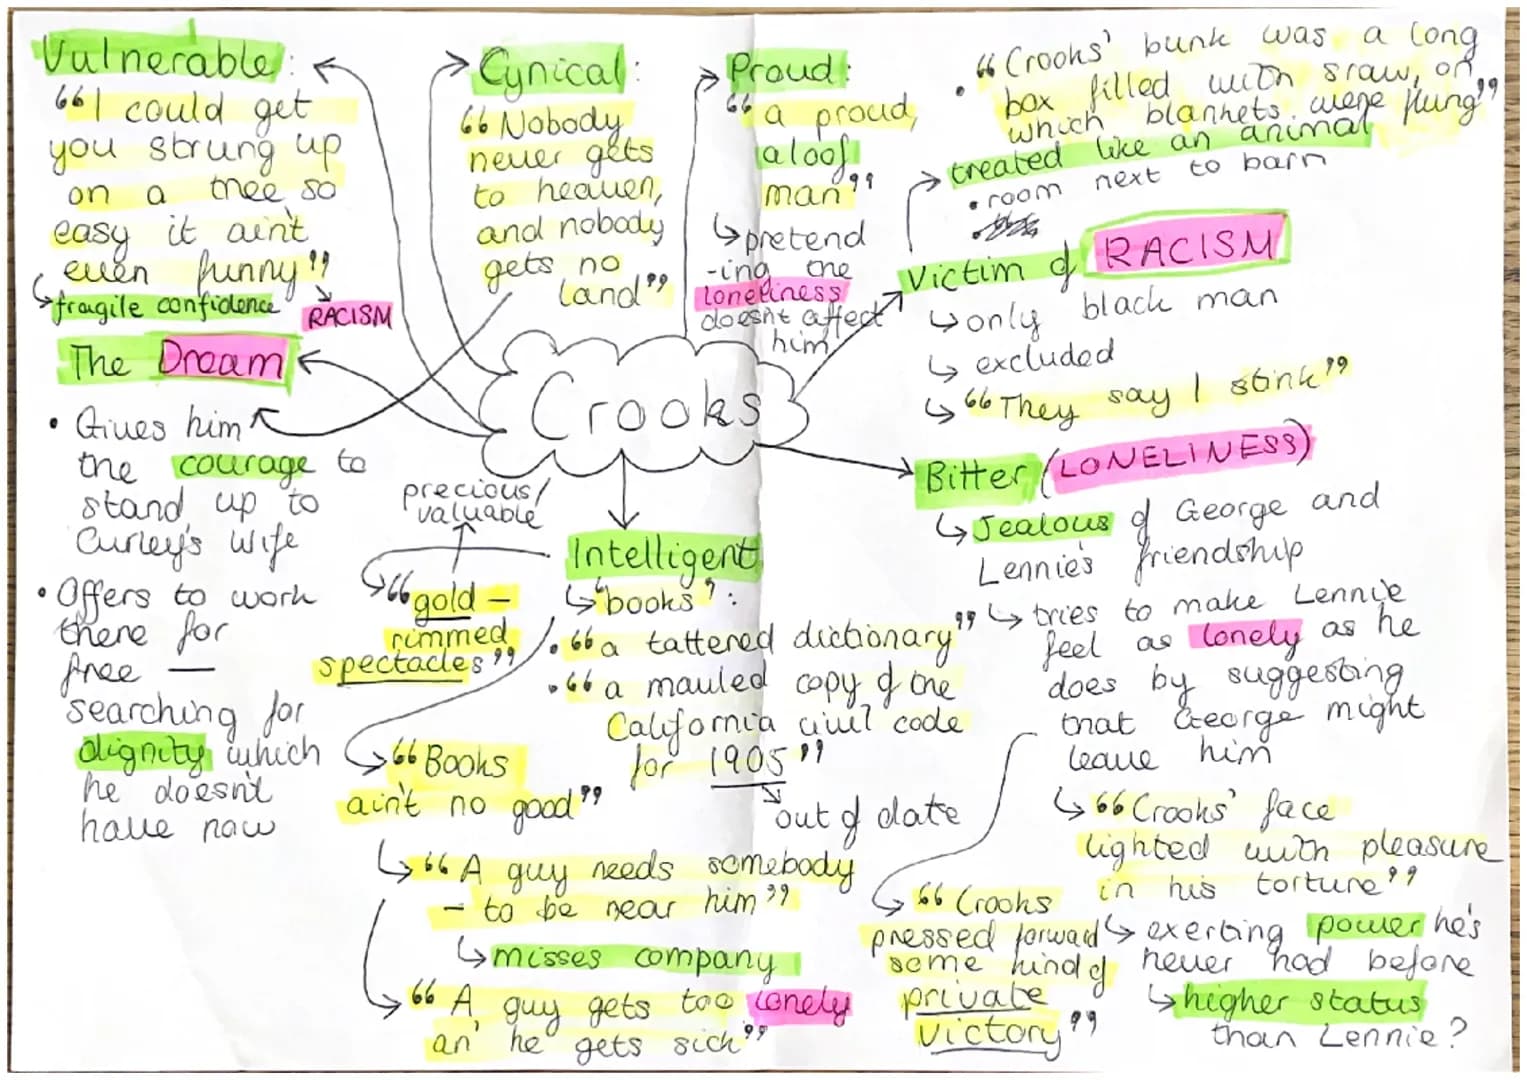 Vulnerable:
"I could get
you strung up
on a tree so
easy it ain't
even funny"
fragile confidence
RACISM
The Dream
• Gives him
the courage to
stand up to
Curley's Wife
• Offers to work
there for
free —
searching for
dignity which
he doesn't
have now
Cynical:
"Nobody
never gets
to heaven,
and nobody
gets no
land"
Proud:
"a proud,
aloof
man"
pretend
-ing the
loneliness
doesnt affect
him
• "Crooks' bunk was a long
box filled with sraw, on
which blankets were flung"
treated like an animal
• room next to barn
Victim of RACISM
only black man
excluded
"They say I stink"
Crooks
Bitter (LONELINESS)
Jealous of George and
Lennie's friendship
tries to make Lennie
feel as lonely as he
does by suggesting
that George might
leave him
"Crooks' face
lighted with pleasure
in his torture"
exerting power he's
never had before
higher status
than Lennie?
"Crooks
pressed forward
some kind of
private
victory"
Intelligent
precious/
valuable
"gold-
rimmed
spectacles"
"books":
• "a tattered dictionary"
• "a mauled copy of the
California civil code
for 1905"
out of date
"Books
ain't no good"
"A guy needs somebody
- to be near him"
misses company
"A guy gets too lonely
an' he gets sick"